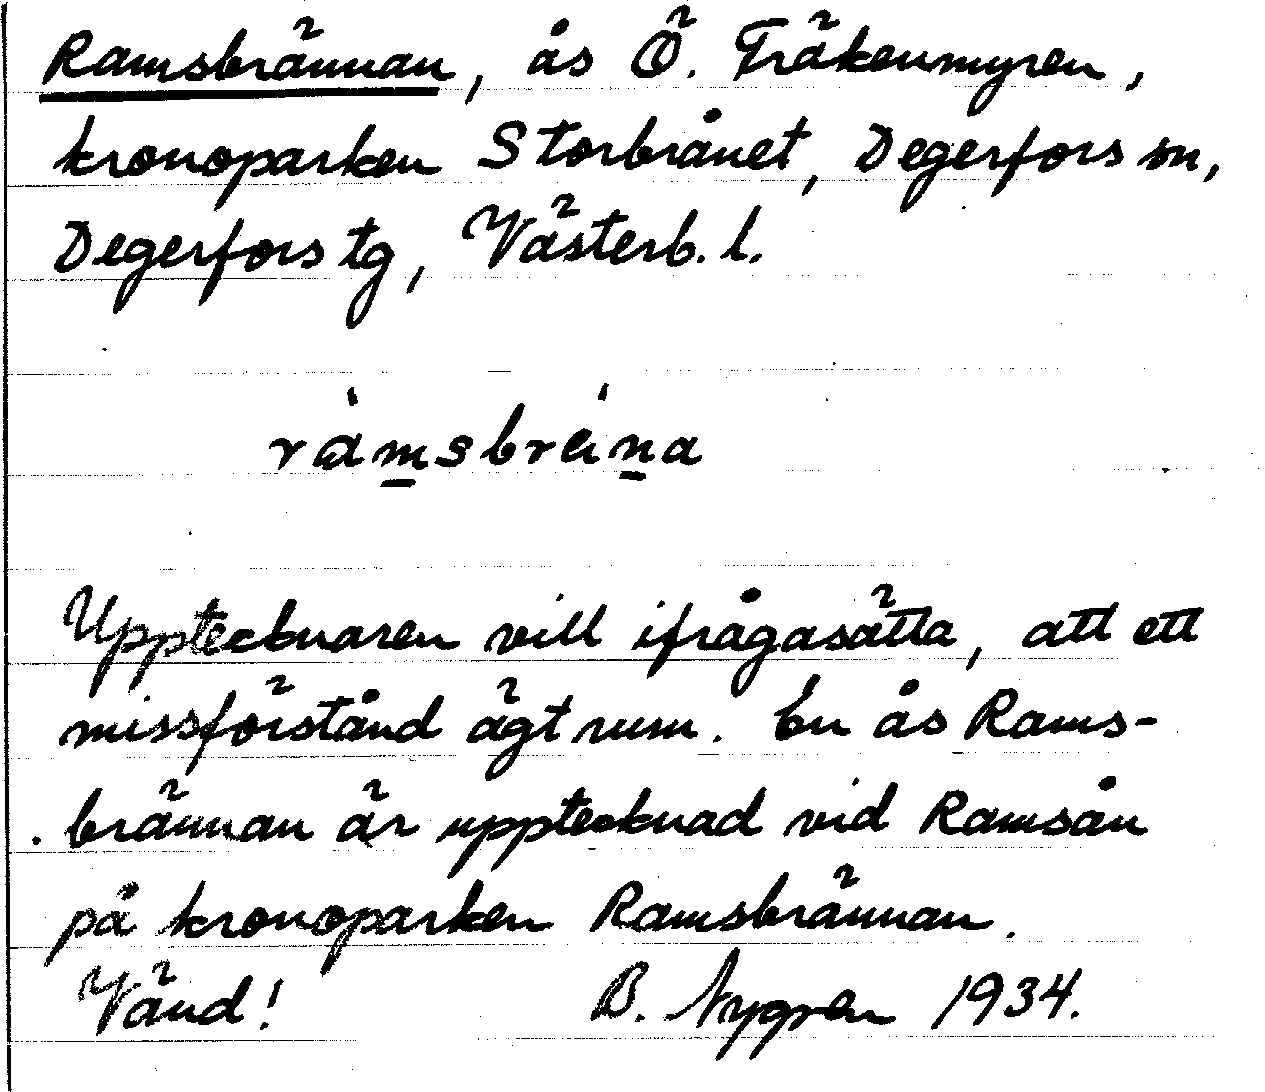 Ramsbrännan, ås Ö. Fräkenmyren,
kronoparken Storbrånet, Degerfors sn,
Degerfors tg, Västerb. l.
ràmsbräna
Upptecknaren vill ifrågasätta, att ett
missförstånd ägt rum. En ås Rams-
brännan är upptecknad vid Ramsån
på kronoparken Ramsbrännan.
Vänd! B. Nygren 1934.